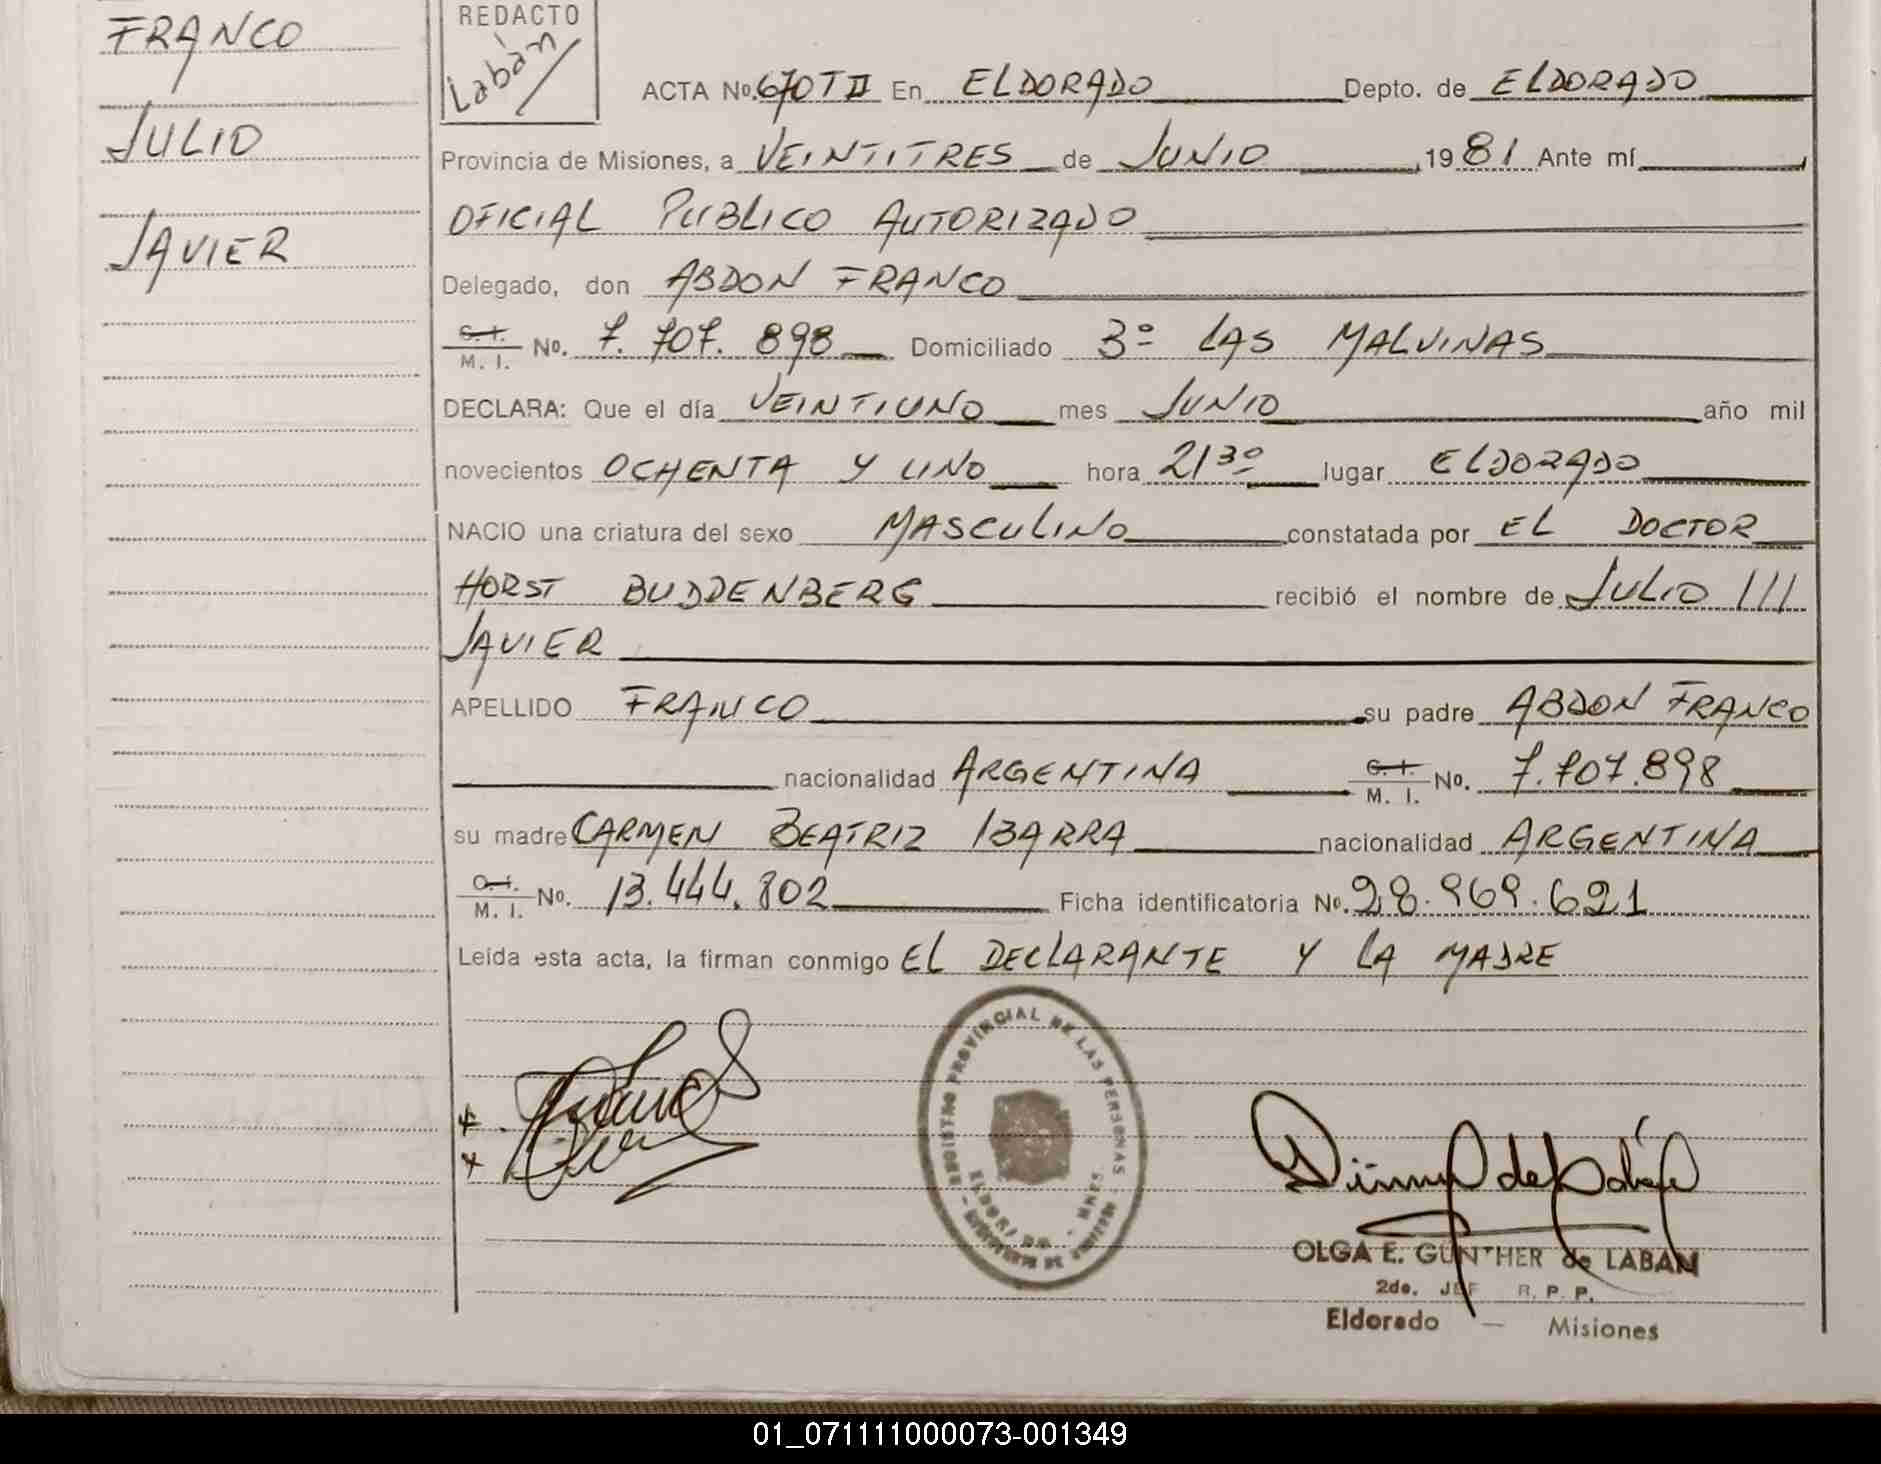 FRANCO
JULIO
JAVIER
REDACTO
Labán
ACTA No. 670 T II En ELDORADO Depto. de ELDORADO
Provincia de Misiones, a VEINTITRES de JUNIO 1981 Ante mí
OFICIAL PUBLICO AUTORIZADO
Delegado, don ABDON FRANCO
C. I. / M. I. No. 7.707.898 Domiciliado 3º LAS MALVINAS
DECLARA: Que el día VEINTIUNO mes JUNIO año mil
novecientos OCHENTA Y UNO hora 21 30 lugar ELDORADO
NACIO una criatura del sexo MASCULINO constatada por EL DOCTOR
HORST BUDDENBERG recibió el nombre de JULIO ///
JAVIER
APELLIDO FRANCO su padre ABDON FRANCO
nacionalidad ARGENTINA C. I. / M. I. No. 7.707.898
su madre CARMEN BEATRIZ IBARRA nacionalidad ARGENTINA
C. I. / M. I. No. 13.444.802 Ficha identificatoria No. 28.969.621
Leída esta acta, la firman conmigo EL DECLARANTE Y LA MADRE
REGISTRO PROVINCIAL DE LAS PERSONAS
OLGA E. GUNTHER de LABAN
2do. JEF R. P. P.
Eldorado — Misiones
01_071111000073-001349